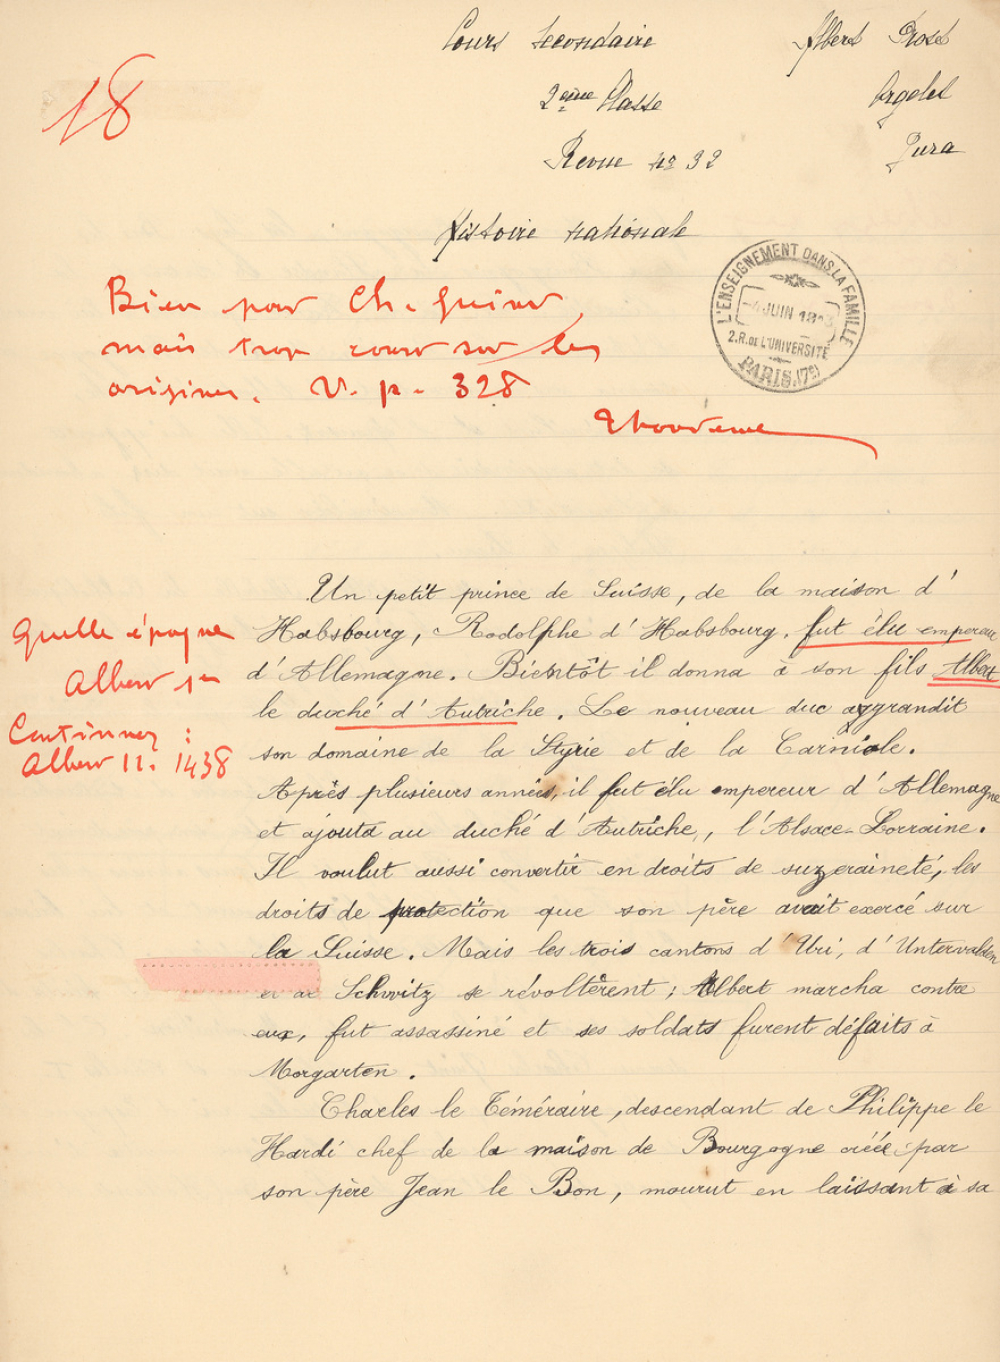 Cours secondaire
Albert Prost
18
2ème Classe
Orgelet
Revue no 32
Jura
Histoire nationale
L'ENSEIGNEMENT DANS LA FAMILLE
JUIN
2. R. DE L'UNIVERSITÉ
PARIS. (7e)
Bien pour Ch. Quint
mais trop court sur les
origines. V. p. 328
Un petit prince de Suisse, de la maison d'
Quelle époque
Habsbourg, Rodolphe d'Habsbourg, fut élu empereur
Albert 1er
d'Allemagne. Bientôt il donna à son fils Albert
le duché d'Autriche. Le nouveau duc aggrandit
Continuez :
Albert II. 1438
son domaine de la Styrie et de la Carniole.
Après plusieurs années, il fut élu empereur d'Allemagne
et ajouta au duché d'Autriche, l'Alsace-Lorraine.
Il voulut aussi convertir en droits de suzeraineté, les
droits de protection que son père avait exercé sur
la Suisse. Mais les trois cantons d'Uri, d'Unterwalden
et de Schwitz se révoltèrent ; Albert marcha contre
eux, fut assassiné et ses soldats furent défaits à
Morgarten.
Charles le Téméraire, descendant de Philippe le
Hardi chef de la maison de Bourgogne créée par
son père Jean le Bon, mourut en laissant à sa